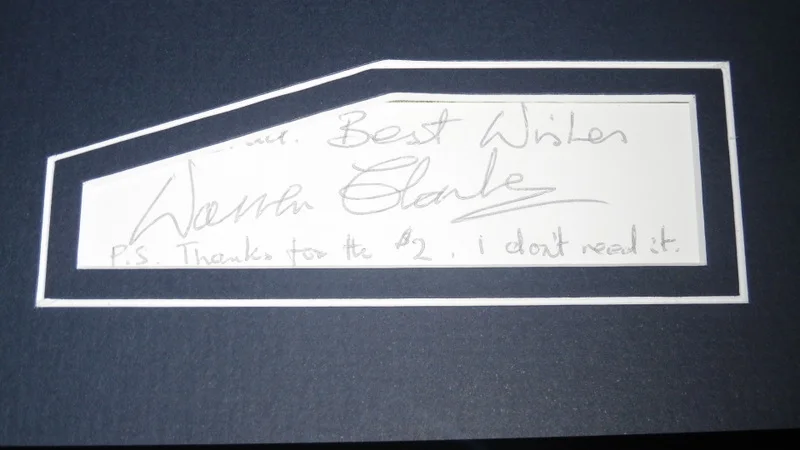 Best Wishes
Warren Clarke
P.S. Thanks for the $2. i don't need it.